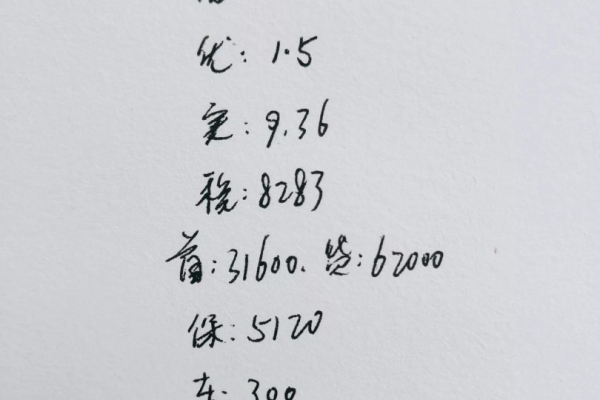 优: 1.5
实: 9.36
税: 8283
首: 31600. 贷: 62000
保: 5120
车: 300